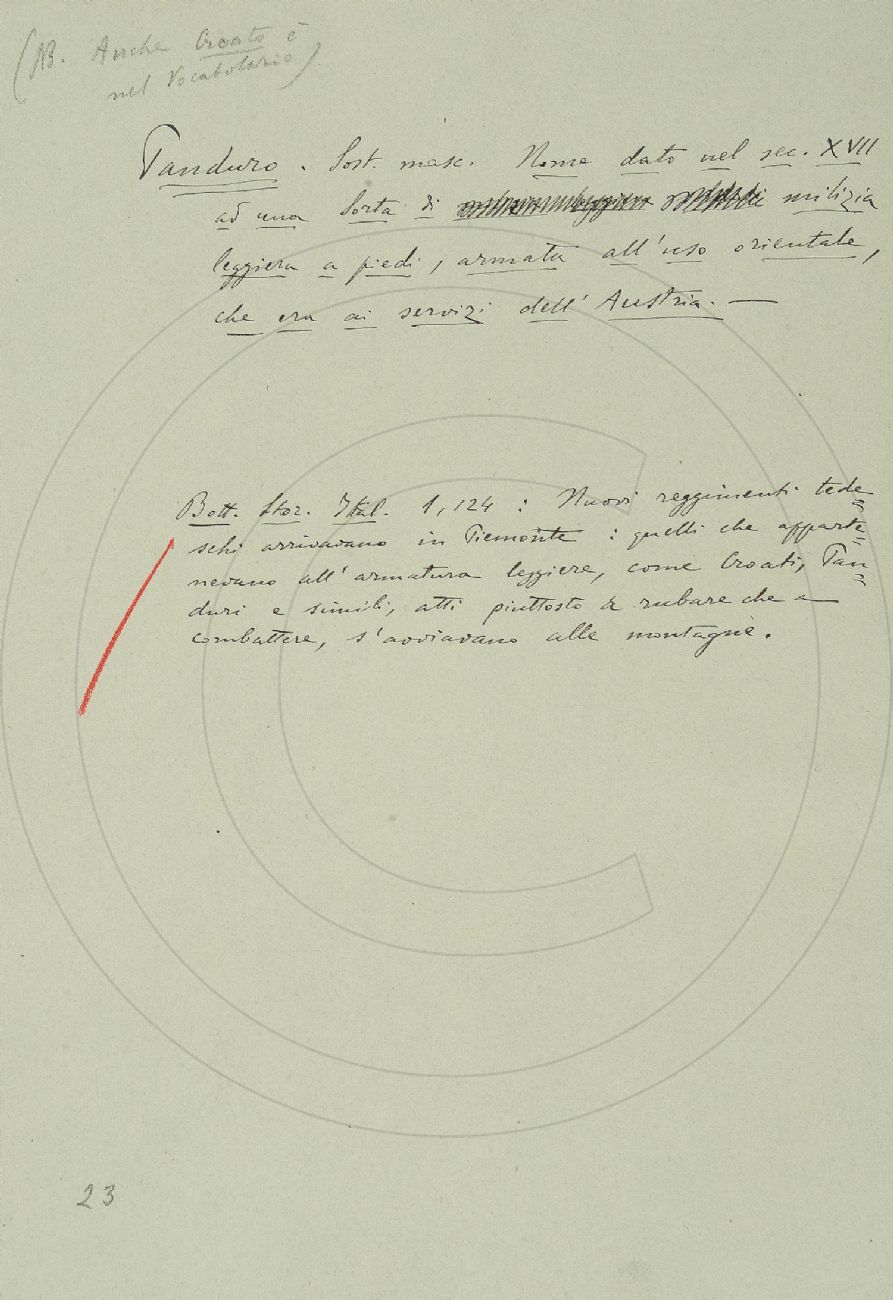 (NB. Anche Croato è
nel Vocabolario).
Panduro. Sost. masc. Nome dato nel sec. XVII
ad una sorta di milizia
leggiera a piedi, armata all'uso orientale,
che era ai servizi dell'Austria. —
Bott. Stor. Ital. 1, 124 : Nuovi reggimenti tede=
schi arrivavano in Piemonte : quelli che apparte=
nevano all'armatura leggiere, come Croati, Pan=
duri e simili, atti piuttosto a rubare che a
combattere, s'avviavano alle montagne.
23